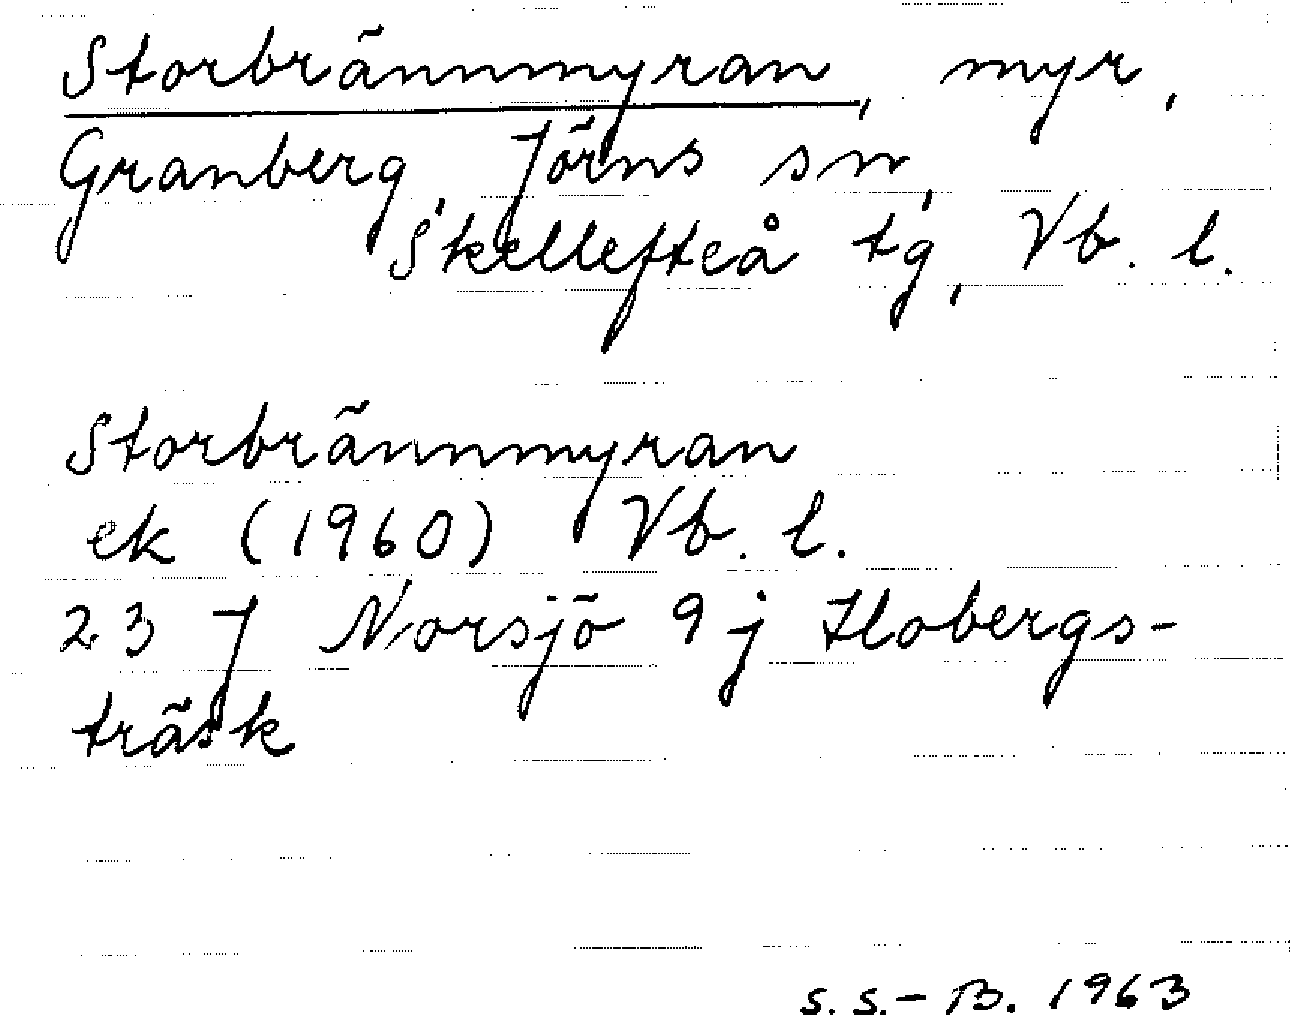 Storbrännmyran, myr,
Granberg, Jörns sn,
Skellefteå tg, Vb. l.
Storbrännmyran
ek (1960) Vb. l.
23 J Norsjö 9 j Flobergs-
träsk
S. S.-B. 1963